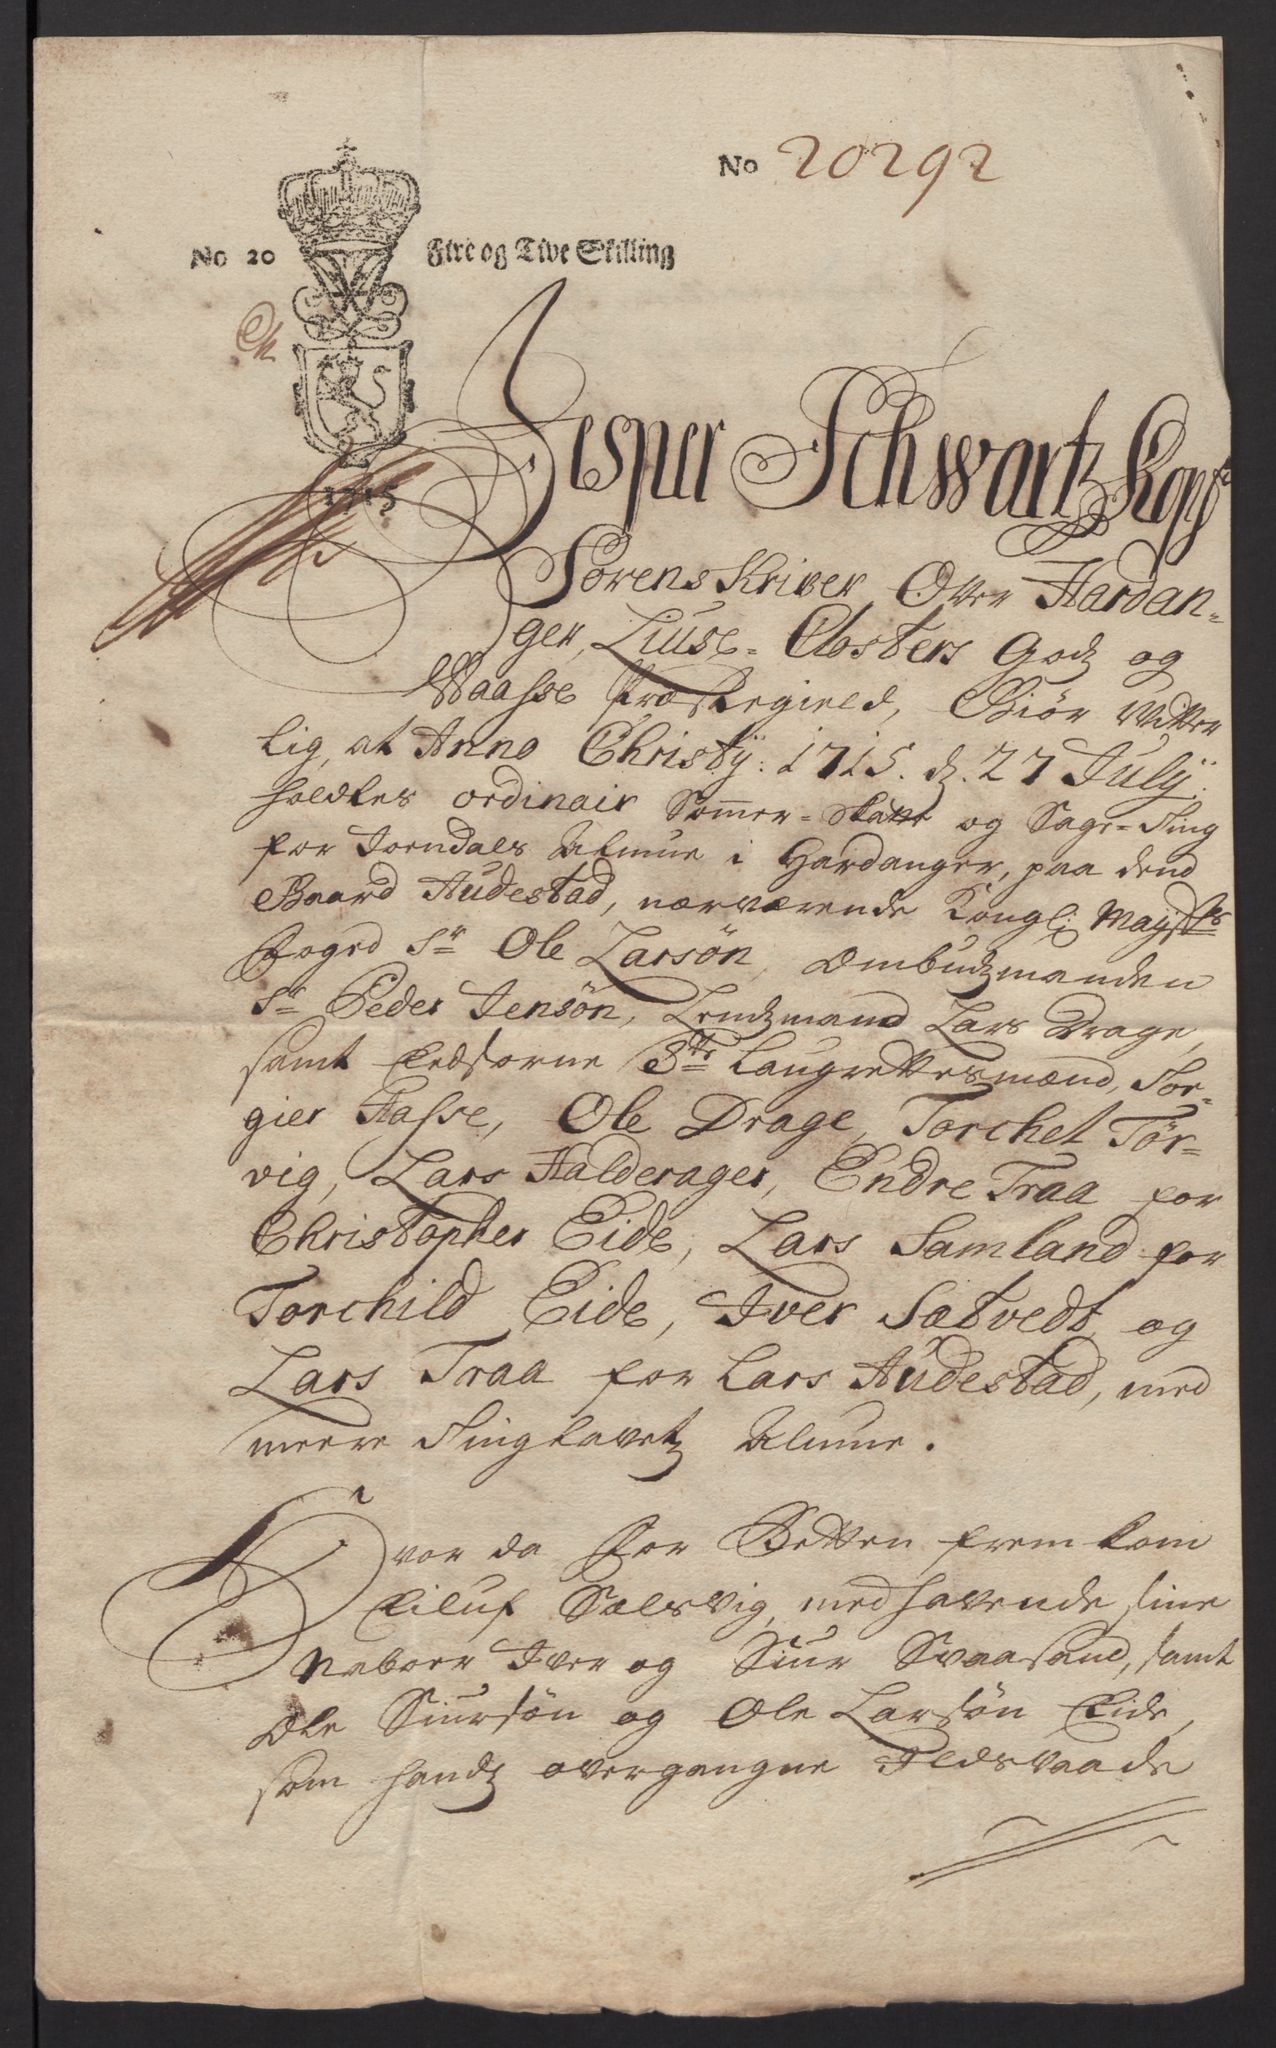 No 20292
No 20 Fire og Tive Skilling
1715
Jesper Schwartz Kopf
Sorenskriver Over Hardan-
ger, Liuse-Closters Godz og
Waasse Præstegield, Giør Vitter
lig, at Anno Christij: 1715. d. 27 Julij.
holdtes ordinair Sommer-skatte og Sage-Ting
for Jorndals Almue i Hardanger, paa dend
Gaard Audestad, nærværende Kongl: Mayts
Foged Sr Ole Larsøn, Ombudzmanden
Sr Peder Jensøn, Lendzmand Lars Drage,
samt Eedsorne 8te Laugrettesmænd, Tor-
gier Hasse, Ole Drage, Torchel Tør-
vig, Lars Halderager, Endre Traa for
Christopher Eide, Lars Samland for
Torchild Eide, Iver Sætvedt og
Lars Traa for Lars Audestad, med
meere Tinglavetz Almue.
Hvor da for Retten frem kom
Eiluf Sælsvig, med havende sine
Naboer Iver og Siur Svaasand, samt
Ole Siursøn og Ole Larsøn Eide,
som handz overgangne Ildsvaade